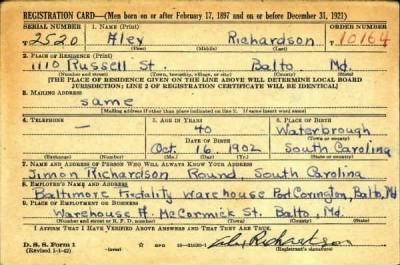 REGISTRATION CARD—(Men born on or after February 17, 1897 and on or before December 31, 1921)
SERIAL NUMBER 1. NAME (Print) ORDER NUMBER
T 2520 Aley Richardson T 10164
(First) (Middle) (Last)
2. PLACE OF RESIDENCE (Print)
1110 Russell St. Balto Md.
(Number and street) (Town, township, village, or city) (County) (State)
[THE PLACE OF RESIDENCE GIVEN ON THE LINE ABOVE WILL DETERMINE LOCAL BOARD
JURISDICTION; LINE 2 OF REGISTRATION CERTIFICATE WILL BE IDENTICAL]
3. MAILING ADDRESS
same
[Mailing address if other than place indicated on line 2. If same insert word same]
4. TELEPHONE 5. AGE IN YEARS 6. PLACE OF BIRTH
— 40 Waterbrough
DATE OF BIRTH (Town or county)
Oct. 16 1902 South Carolina
(Exchange) (Number) (Mo.) (Day) (Yr.) (State or country)
7. NAME AND ADDRESS OF PERSON WHO WILL ALWAYS KNOW YOUR ADDRESS
Jimon Richardson Round, South Carolina
8. EMPLOYER'S NAME AND ADDRESS
Baltimore Warehouse Port Covington, Balto, Md
9. PLACE OF EMPLOYMENT OR BUSINESS
Warehouse A. McCormick St. Balto Md.
(Number and street or R. F. D. number) (Town) (County) (State)
I AFFIRM THAT I HAVE VERIFIED ABOVE ANSWERS AND THAT THEY ARE TRUE.
D. S. S. Form 1
(Revised 1-1-42) (over) Richardson
(Registrant's signature)